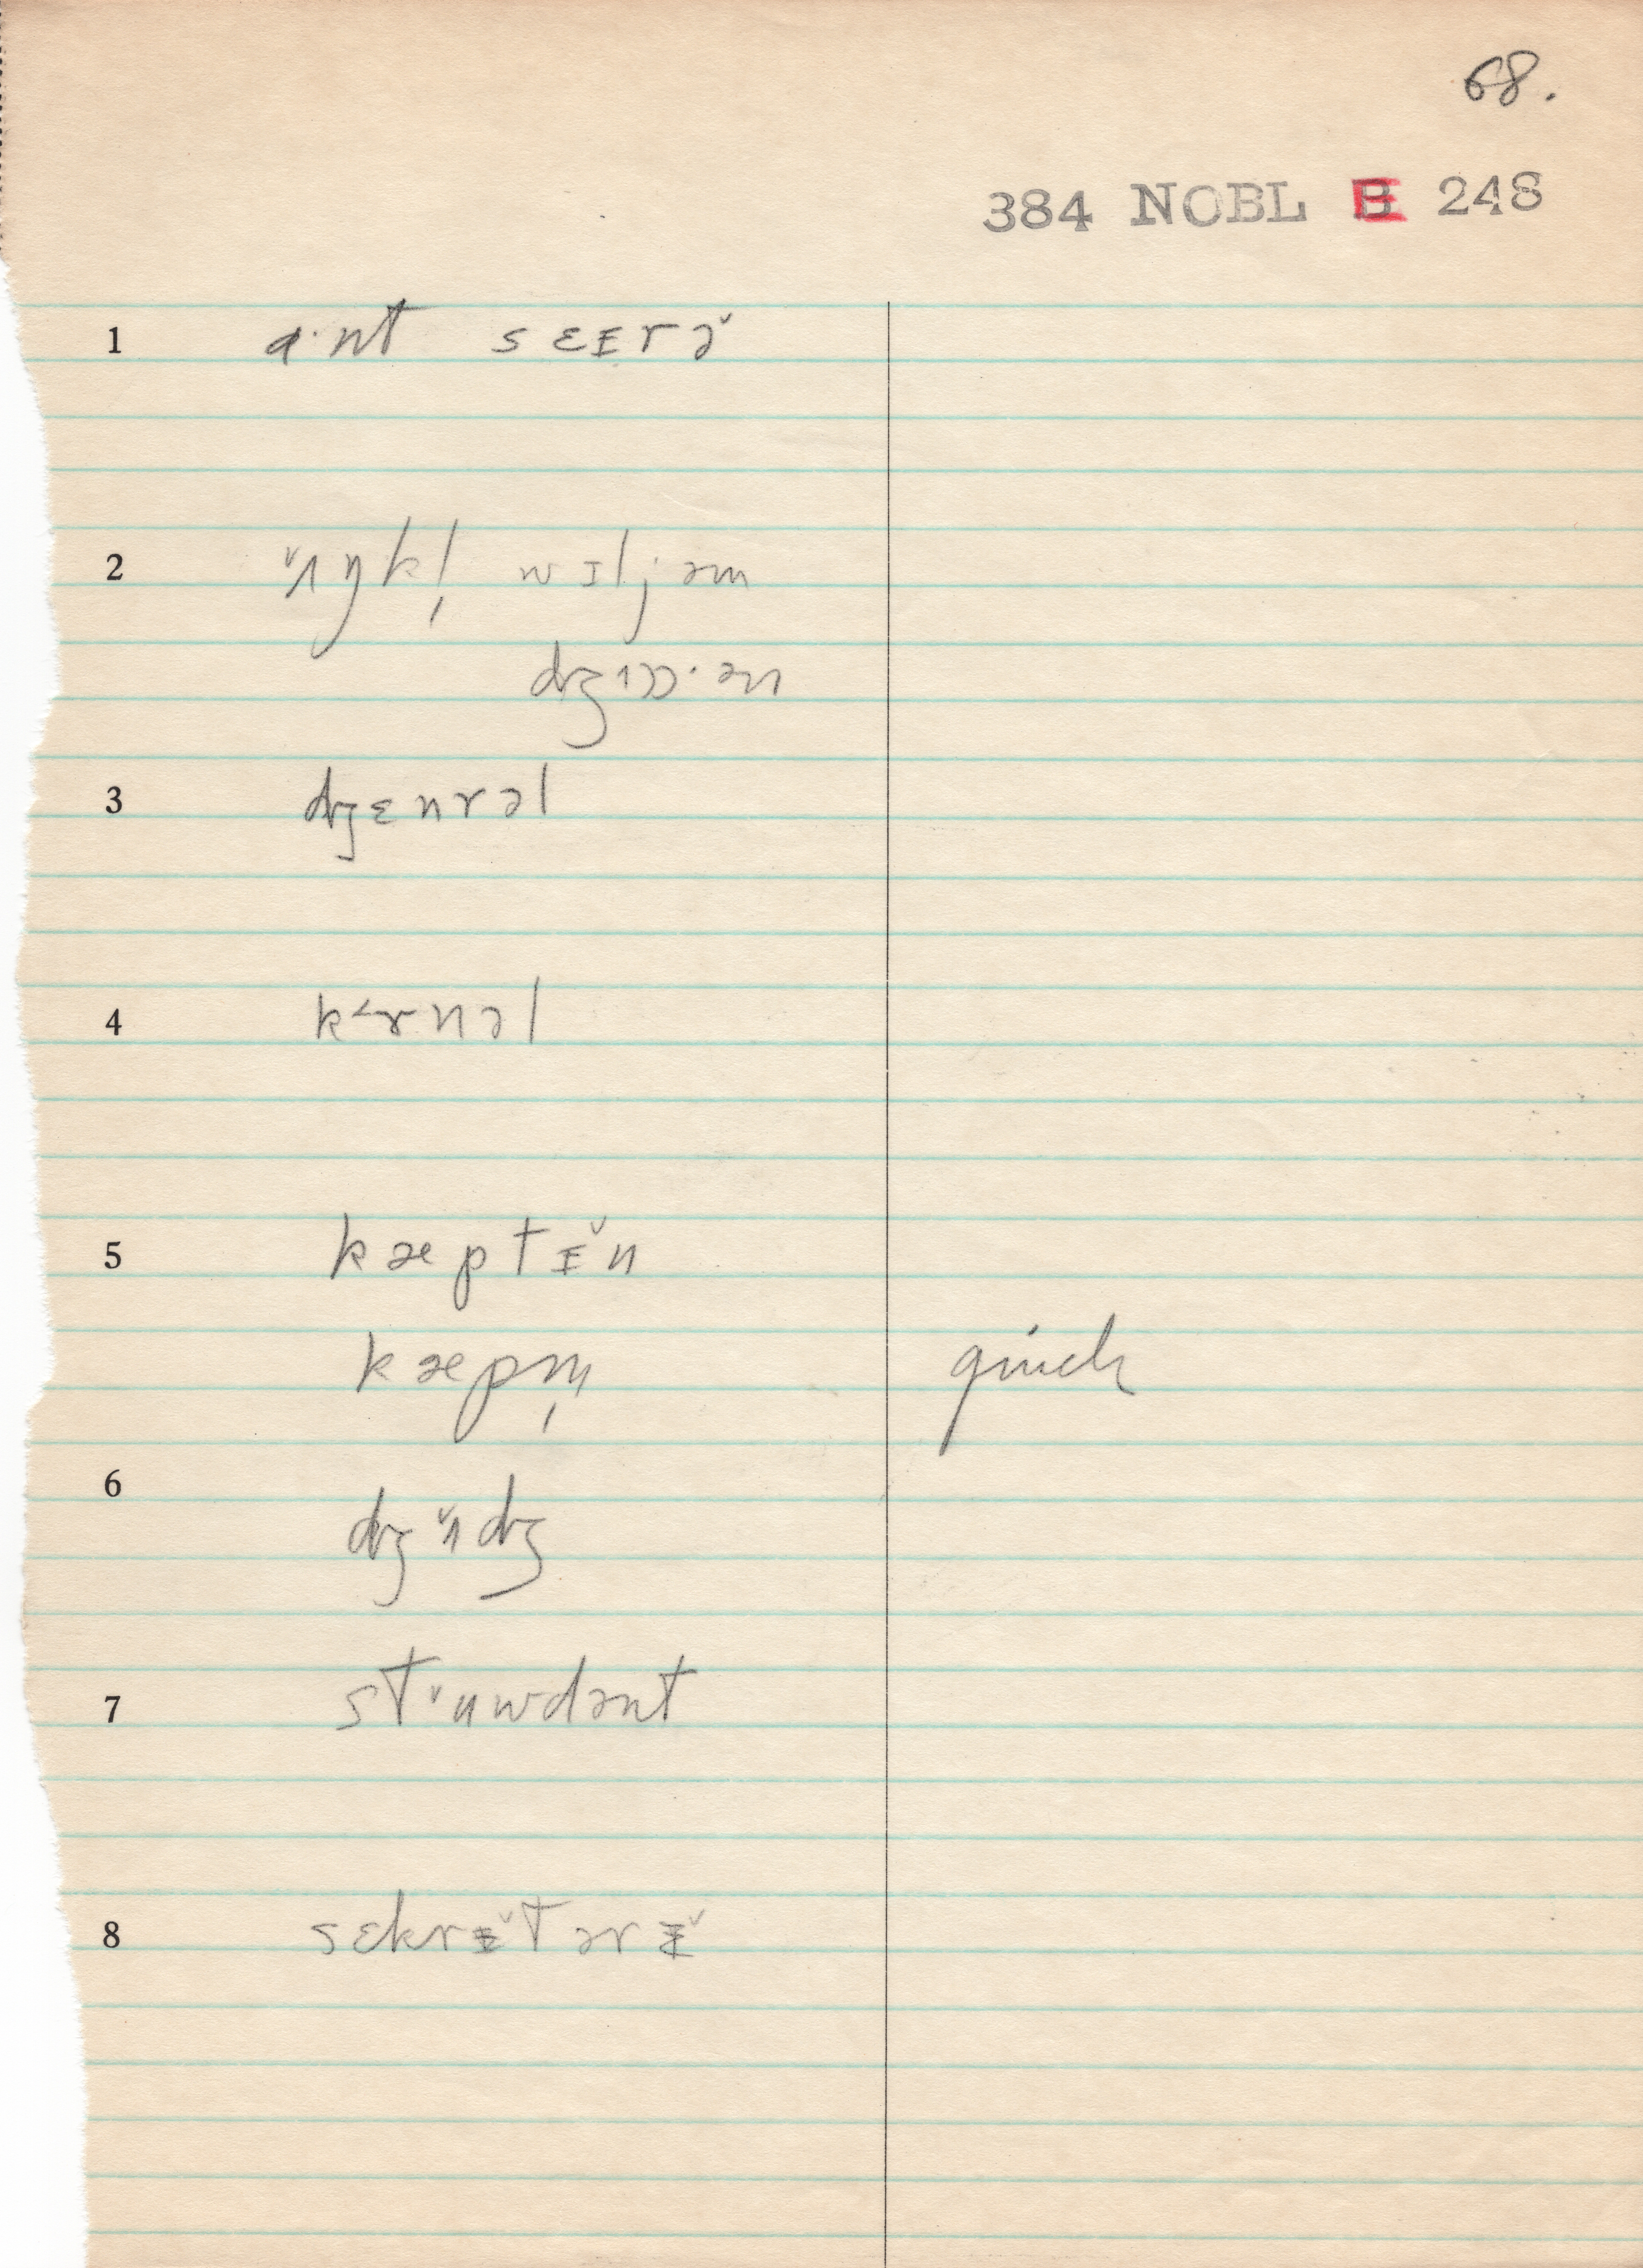 68.
384 NOBL E 248
1 a·nt sɛɪrə̆
2 ʌ̆ŋkl̩ wɪljəm
dʒɒɒ·ən
3 dʒɛnrəl
4 kɚnəl
5 kæptɪ̆n
kæpm̩ quick
6 dʒʌ̆dʒ
7 stʉwdənt
8 sɛkrɨ̆tərɨ̆